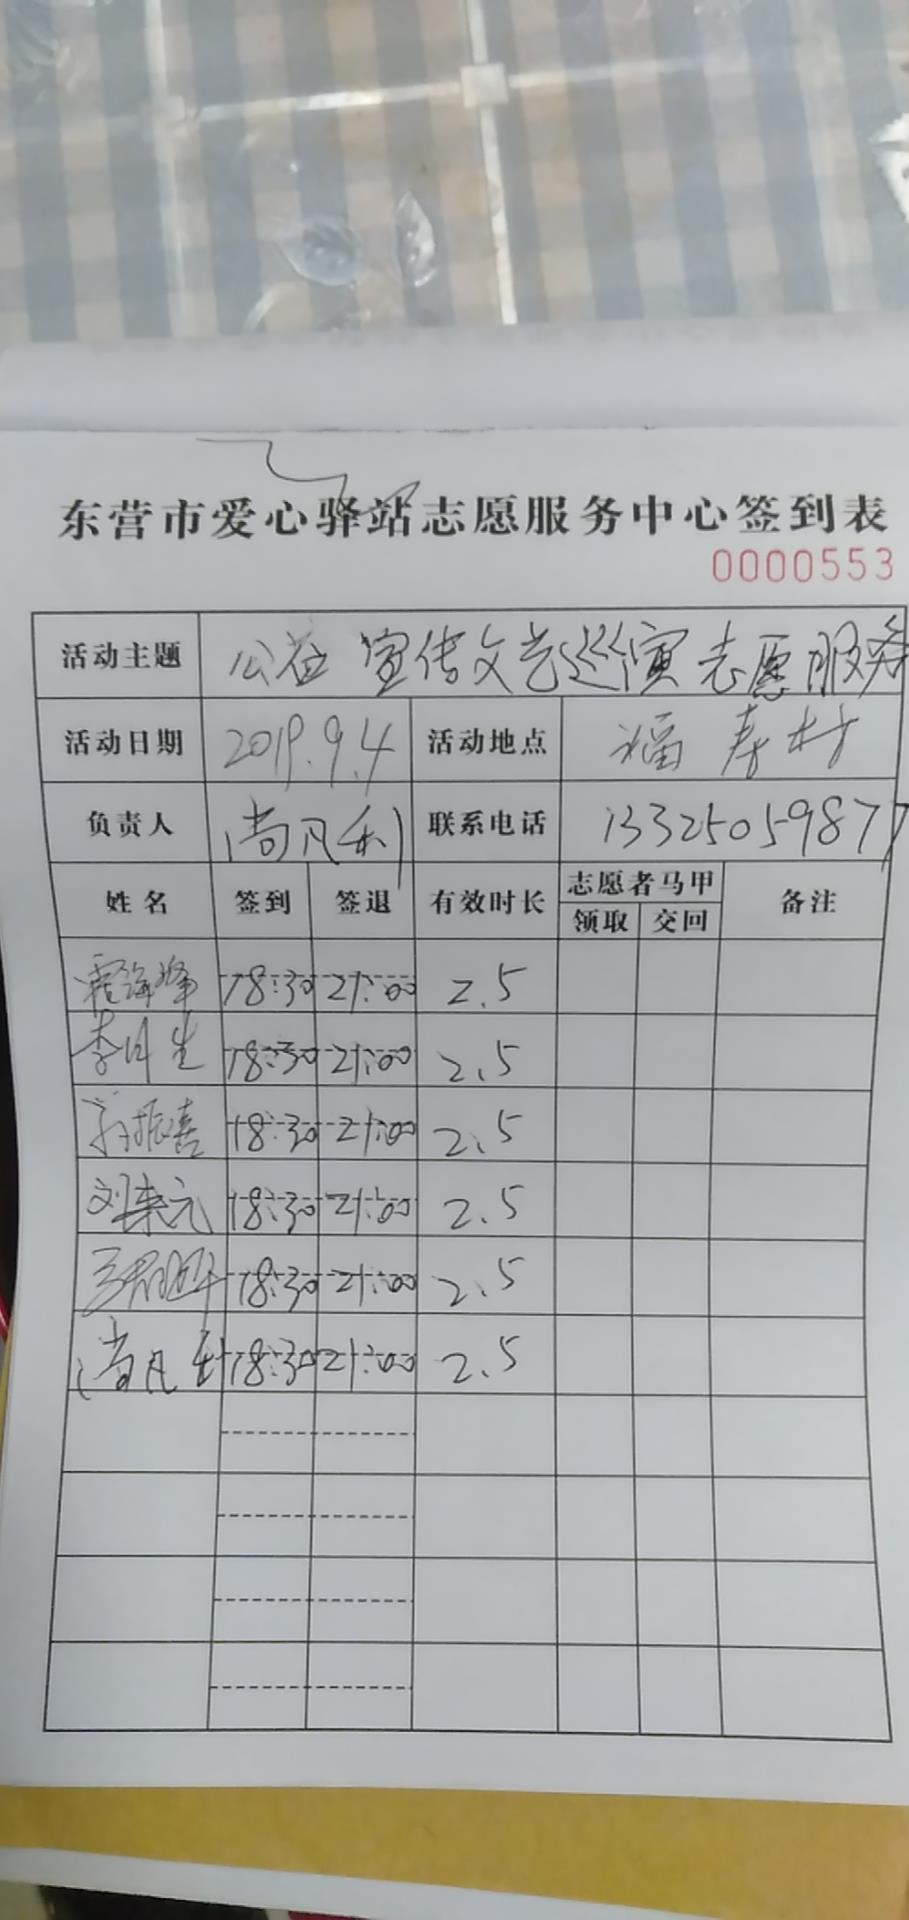 东营市爱心驿站志愿服务中心签到表
0000553
活动主题 公益 宣传文艺巡演志愿服务
活动日期 2019.9.4 活动地点 福寿村
负责人 尚凡利 联系电话 13325059877
姓名 签到 签退 有效时长 志愿者马甲 备注
领取 交回
海峰 18:30 21:00 2.5
李月生 18:30 21:00 2.5
振喜 18:30 21:00 2.5
刘来元 18:30 21:00 2.5
18:30 21:00 2.5
尚凡利 18:30 21:00 2.5